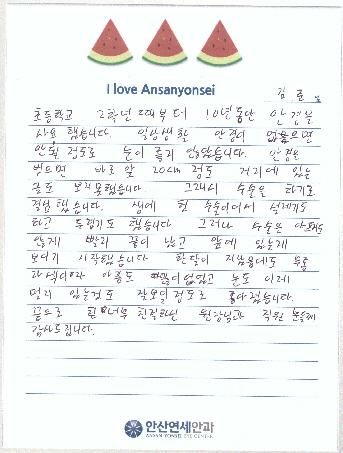 I love Ansanyonsei
김 준
초등학교 2학년때부터 10년동안 안경을
사용했습니다. 일상생활 안경이 없으면
안될 정도로 눈이 좋지 않았습니다. 안경을
벗으면 바로 앞 20cm 정도 거리에 있는
글도 보지못했습니다. 그래서 수술을 하기로
결심했습니다. 생에 첫 수술이어서 설레기도
하고 두렵기도 했습니다. 그러나 수술은 아프지도
않게 빨리 끝이 났고 앞에 있는게
보이기 시작했습니다. 한달이 지났음에도
라섹이라 아픔도 많이 없었고 눈도 이제
멀리 있는것도 잘보일정도로 좋아졌습니다.
끝으로 친절하신 원장님과 직원 분들께
감사드립니다.
안산연세안과
ANSAN YONSEI EYE CENTER